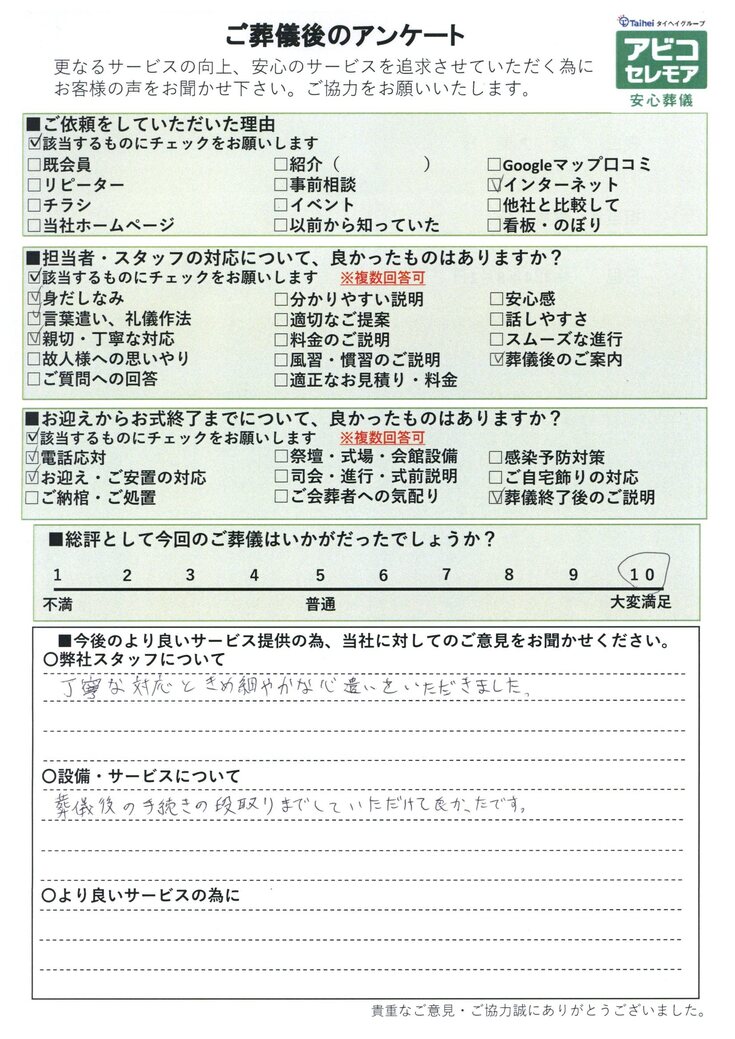 ご葬儀後のアンケート
Taihei タイヘイグループ
アビコ
セレモア
安心葬儀
更なるサービスの向上、安心のサービスを追求させていただく為に
お客様の声をお聞かせ下さい。ご協力をお願いいたします。
■ご依頼をしていただいた理由
☑該当するものにチェックをお願いします
□既会員 □紹介（　　　　　） □Googleマップ口コミ
□リピーター □事前相談 ☑インターネット
□チラシ □イベント □他社と比較して
□当社ホームページ □以前から知っていた □看板・のぼり
■担当者・スタッフの対応について、良かったものはありますか？
☑該当するものにチェックをお願いします ※複数回答可
☑身だしなみ □分かりやすい説明 □安心感
☑言葉遣い、礼儀作法 □適切なご提案 □話しやすさ
☑親切・丁寧な対応 □料金のご説明 □スムーズな進行
□故人様への思いやり □風習・慣習のご説明 ☑葬儀後のご案内
□ご質問への回答 □適正なお見積り・料金
■お迎えからお式終了までについて、良かったものはありますか？
☑該当するものにチェックをお願いします ※複数回答可
☑電話応対 □祭壇・式場・会館設備 □感染予防対策
☑お迎え・ご安置の対応 □司会・進行・式前説明 □ご自宅飾りの対応
□ご納棺・ご処置 □ご会葬者への気配り ☑葬儀終了後のご説明
■総評として今回のご葬儀はいかがだったでしょうか？
1 2 3 4 5 6 7 8 9 10
不満 普通 大変満足
■今後のより良いサービス提供の為、当社に対してのご意見をお聞かせください。
○弊社スタッフについて
丁寧な対応ときめ細やかな心遣いをいただきました。
○設備・サービスについて
葬儀後の手続きの段取りまでしていただけて良かったです。
○より良いサービスの為に
貴重なご意見・ご協力誠にありがとうございました。